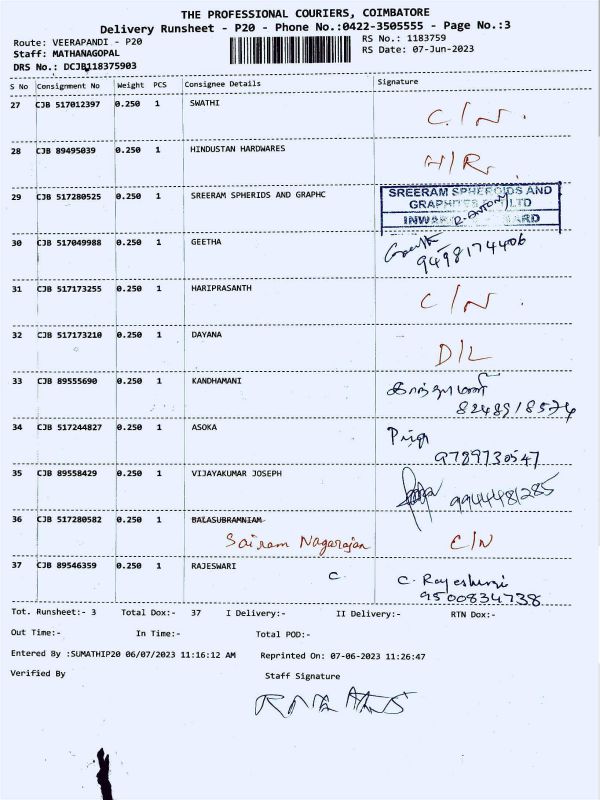 THE PROFESSIONAL COURIERS, COIMBATORE
Delivery Runsheet - P20 - Phone No.:0422-3505555 - Page No.:3
Route: VEERAPANDI - P20
RS No.: 1183759
Staff: MATHANAGOPAL
RS Date: 07-Jun-2023
DRS No.: DCJB118375903
S No Consignment No Weight PCS Consignee Details Signature
27 CJB 517012397 0.250 1 SWATHI C/N.
28 CJB 89495039 0.250 1 HINDUSTAN HARDWARES H/R.
29 CJB 517280525 0.250 1 SREERAM SPHERIDS AND GRAPHC
SREERAM SPHEROIDS AND
LTD
R. Antony
30 CJB 517049988 0.250 1 GEETHA
9498174406
31 CJB 517173255 0.250 1 HARIPRASANTH C/N.
32 CJB 517173210 0.250 1 DAYANA D/L
33 CJB 89555690 0.250 1 KANDHAMANI
8248918574
34 CJB 517244827 0.250 1 ASOKA
9789730547
35 CJB 89558429 0.250 1 VIJAYAKUMAR JOSEPH 9944481285
36 CJB 517280582 0.250 1 BALASUBRAMNIAM
Sairam Nagarajan C/N
37 CJB 89546359 0.250 1 RAJESWARI
C. C. Rajeshwari
9500834738
Tot. Runsheet:- 3 Total Dox:- 37 I Delivery:- II Delivery:- RTN Dox:-
Out Time:- In Time:- Total POD:-
Entered By :SUMATHIP20 06/07/2023 11:16:12 AM Reprinted On: 07-06-2023 11:26:47
Verified By Staff Signature